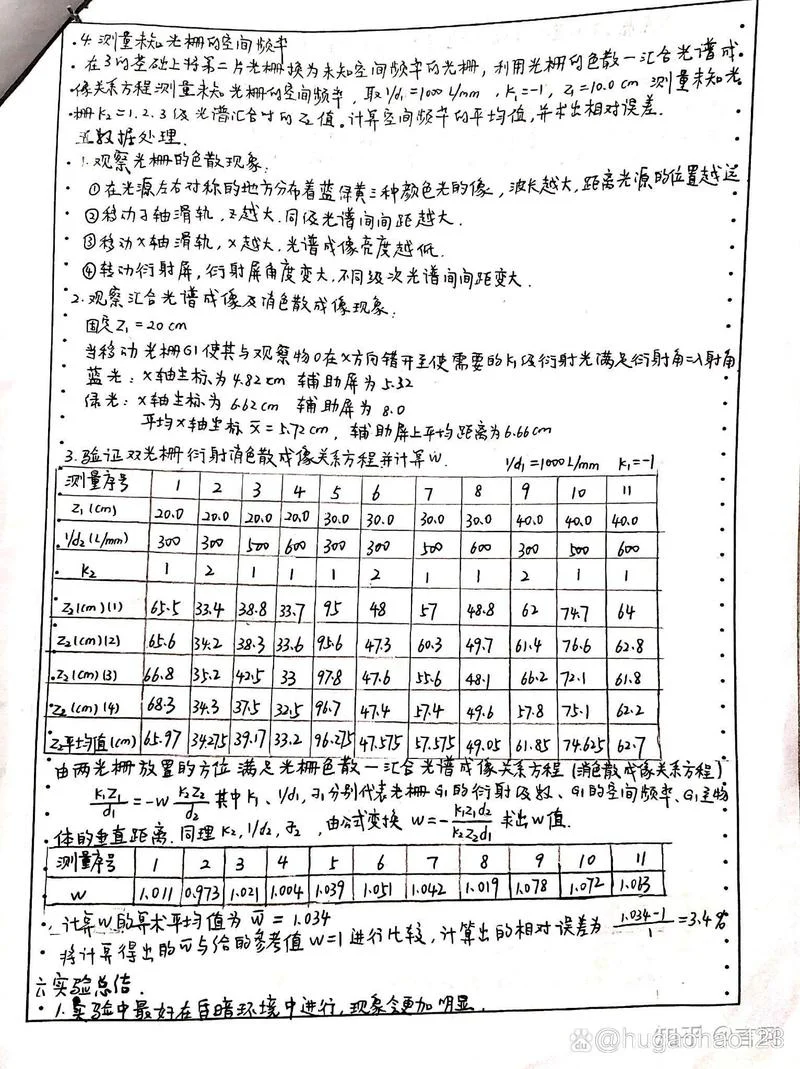 4. 测量未知光栅的空间频率
在3的基础上将第二片光栅换为未知空间频率的光栅，利用光栅的色散—汇合光谱成
像关系方程测量未知光栅的空间频率，取1/d₁=1000 L/mm，K₁=-1，Z₁=10.0cm 测量未知光
栅K₂=1.2.3级光谱汇合时的Z₂值。计算空间频率的平均值，并求出相对误差.
五.数据处理.
1.观察光栅的色散现象:
①在光源左右对称的地方分布着蓝绿黄三种颜色光的像，波长越大，距离光源的位置越远
②移动z轴滑轨，z越大.同级光谱间间距越大.
③移动x轴滑轨，x越大.光谱成像亮度越低.
④转动衍射屏，衍射屏角度变大，不同级次光谱间间距变大.
2.观察汇合光谱成像及消色散成像现象:
固定Z₁=20cm
当移动光栅G1使其与观察物O在x方向错开至使需要的K₁级衍射光满足衍射角=入射角
蓝光：x轴坐标为4.82cm 辅助屏为5.32
绿光：x轴坐标为6.62cm 辅助屏为8.0
平均x轴坐标 x̄=5.72cm，辅助屏上平均距离为6.66cm
3.验证双光栅衍射消色散成像关系方程并计算W. 1/d₁=1000L/mm K₁=-1
测量序号 1 2 3 4 5 6 7 8 9 10 11
Z₁(cm) 20.0 20.0 20.0 20.0 30.0 30.0 30.0 30.0 40.0 40.0 40.0
1/d₂(L/mm) 300 300 500 600 300 300 500 600 300 500 600
K₂ 1 2 1 1 1 2 1 1 2 1 1
Z₂(cm)(1) 65.5 33.4 38.8 33.7 95 48 57 48.8 62 74.7 64
Z₂(cm)(2) 65.6 34.2 38.3 33.6 95.6 47.3 60.3 49.7 61.4 76.6 62.8
Z₂(cm)(3) 66.8 35.2 42.5 33 97.8 47.6 55.6 48.1 66.2 72.1 61.8
Z₂(cm)(4) 68.3 34.3 37.5 32.5 96.7 47.4 57.4 49.6 57.8 75.1 62.2
Z₂平均值(cm) 65.97 34.275 39.17 33.2 96.275 47.575 57.575 49.05 61.85 74.625 62.7
由两光栅放置的方位满足光栅色散—汇合光谱成像关系方程(消色散成像关系方程)
K₁Z₁/d₁=-W K₂Z₂/d₂ 其中K₁、1/d₁，z₁分别代表光栅G₁的衍射级数、G₁的空间频率、G₁至物
体的垂直距离.同理K₂，1/d₂，z₂，由公式变换 W=-K₁Z₁d₂/K₂Z₂d₁ 求出W值.
测量序号 1 2 3 4 5 6 7 8 9 10 11
W 1.011 0.973 1.021 1.004 1.039 1.051 1.042 1.019 1.078 1.072 1.063
计算W的算术平均值为 w̄=1.034
将计算得出的w̄与给的参考值W=1进行比较，计算出的相对误差为 1.034-1/1=3.4%
六.实验总结.
1.实验中最好在昏暗环境中进行，现象会更加明显.
知乎
hugaohao123